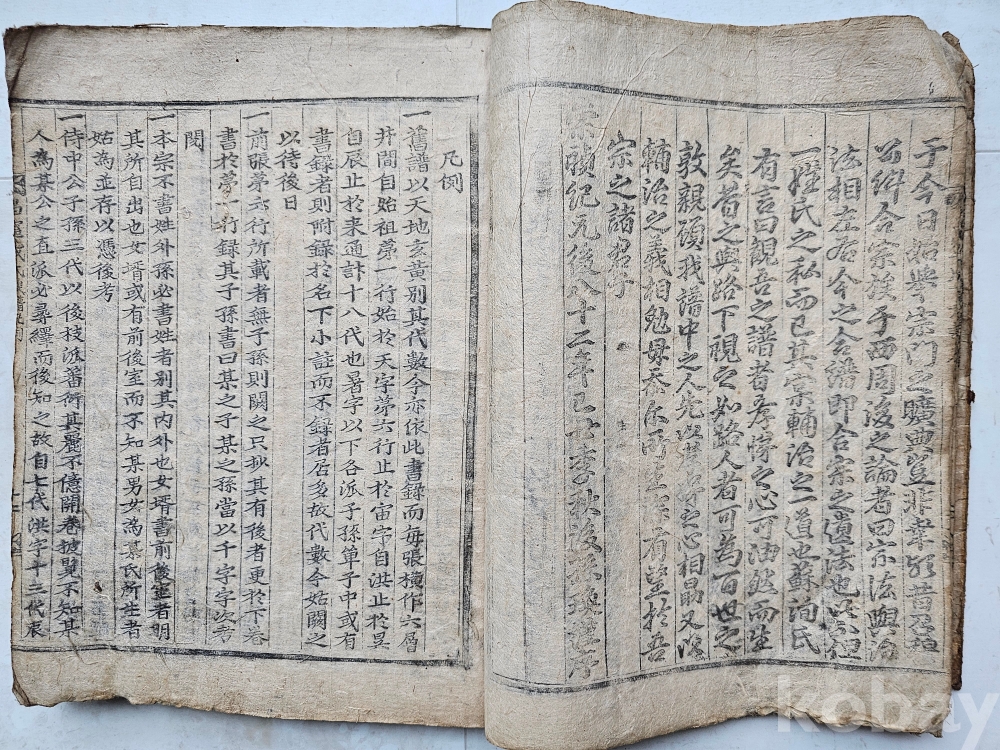 于今日始擧宗門之曠典豈非幸歟昔召穆
公糾合宗族于西周後之論者曰宗法與治
法相左右今之合譜即合宗之遺法也以云但
一姓氏之私而已其宗輔治之一道也蘇洵氏
有言曰觀吾之譜者孝悌之心可油然而生
矣苟之與路下視之如路人者可為百世之
敦親碩我譜中之人先以之心相勗又以
輔治之義相勉毋忝尔所生深有望於吾
宗之諸君子
崇禎紀元後八十二年己丑季秋後孫謹序
凡例
一舊譜以天地玄黃別其代數今亦依此書錄而每張橫作六層
井間自始祖第一行始於天字第六行止於宙字自洪止於昃
自辰止於來通計十八代也暑字以下各派子孫單子中或有
書錄者則附錄於名下小註而不錄者居多故代數今姑闕之
以待後日
一前張第六行所載者無子孫則闕之只抄其有後者更於下卷
書於第一行錄其子孫書曰某之子某之孫當以千字字次考
閱
一本宗不書姓外孫必書姓者別其內外也女壻書前後室者明
其所自出也女壻或有前後室而不知某男女為某氏所生者
姑為並存以憑後考
一侍中公子孫三代以後枝派蕃衍其麗不億開卷披覽不知其
人為某公之直派必尋繹而後知之故自七代洪字十三代辰
kobay